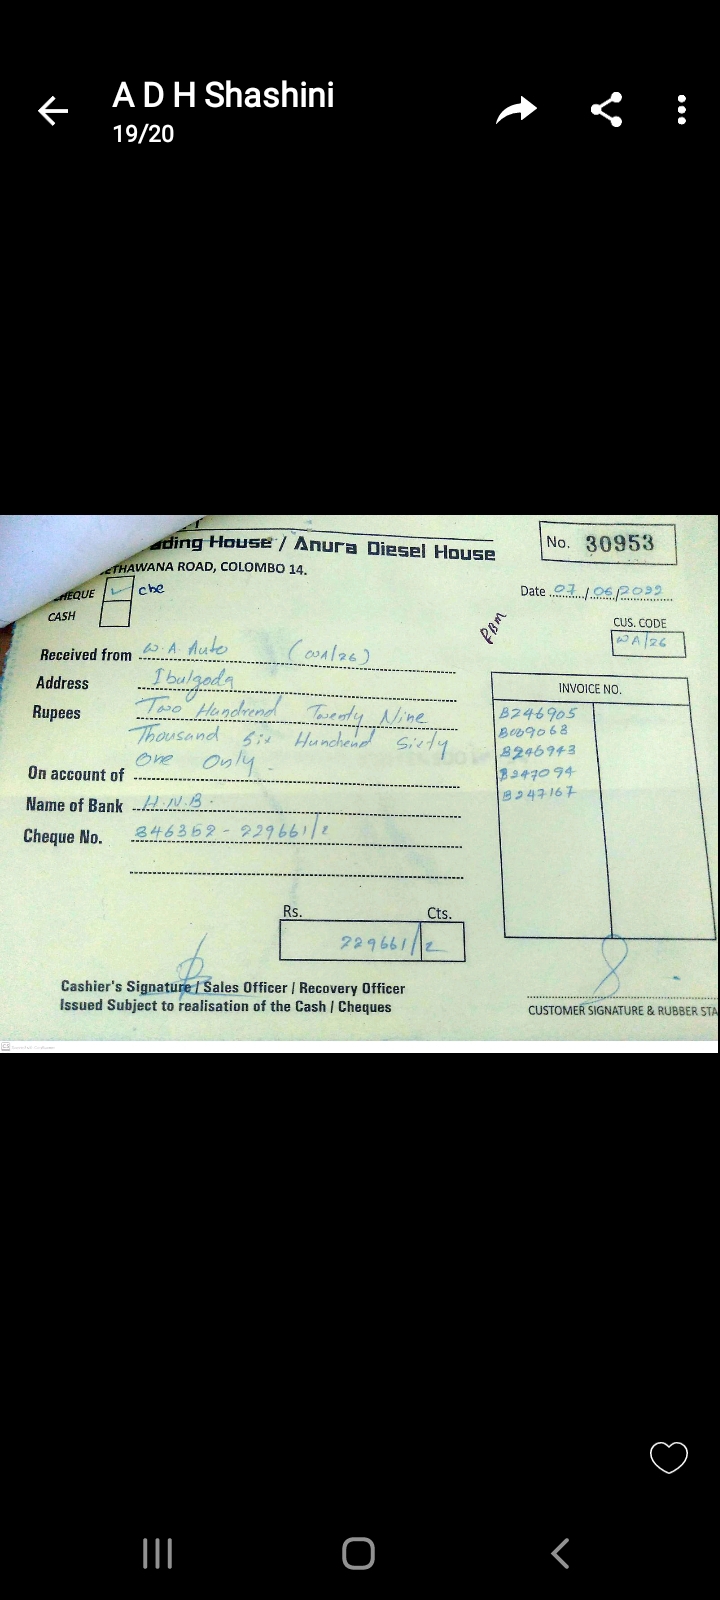 A D H Shashini
19/20
ading House / Anura Diesel House
No. 30953
ETHAWANA ROAD, COLOMBO 14.
CHEQUE che
Date 07/06/2022
CASH
RBM
CUS. CODE
WA/26
Received from W.A. Auto (WA/26)
Address Ibulgoda
INVOICE NO.
Rupees Two Hundrend Twenty Nine
Thousand Six Hundend Sixty
One Only.
B246905
B009068
B246943
B247094
B247167
On account of
Name of Bank H.N.B.
Cheque No. 846352 - 229661/2
Rs. Cts.
229661/2
Cashier's Signature / Sales Officer / Recovery Officer
Issued Subject to realisation of the Cash / Cheques
CUSTOMER SIGNATURE & RUBBER STA